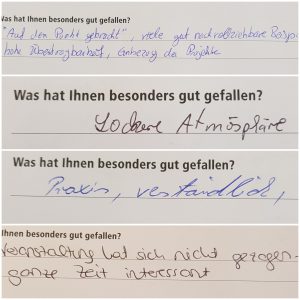 Was hat Ihnen besonders gut gefallen?
"Auf den Punkt gebracht", viele gut nachvollziehbare Beisp
hohe Übertragbarkeit, Einbezug der Projekte
Was hat Ihnen besonders gut gefallen?
Lockere Atmosphäre
Was hat Ihnen besonders gut gefallen?
Praxis, verständlich,
Ihnen besonders gut gefallen?
Veranstaltung hat sich nicht gezogen-
ganze Zeit interessant